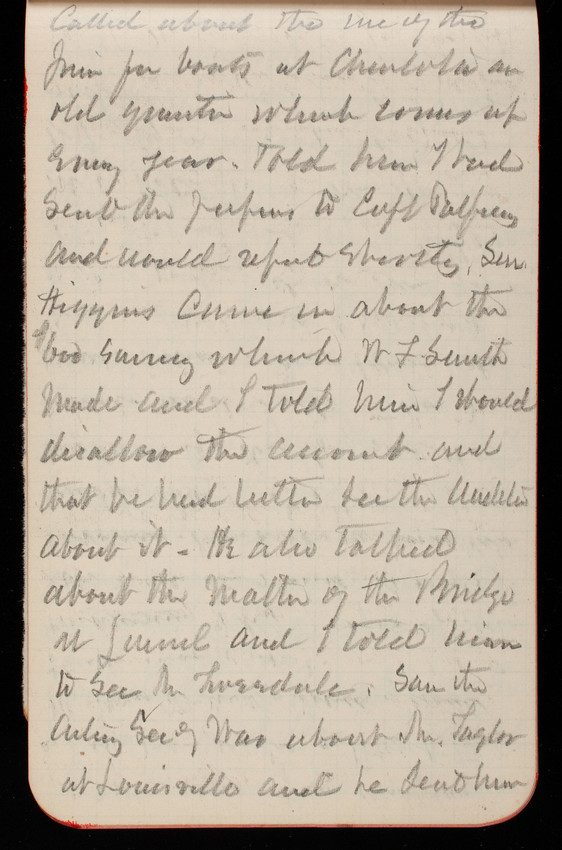 Called about the use of the
for boats at Charlotte an
old question which comes up
every year. Told him I had
sent the papers to Capt Palfrey
and would report shortly, Sen.
Higgins came in about the
$600 survey which W F Smith
made and I told him I should
disallow the account and
that he had better see the Auditor
about it - He also talked
about the matter of the Bridge
at Laurel and I told him
to see Mr. Saw the
Acting Secy War about Mr. Taylor
at Louisville and he send him